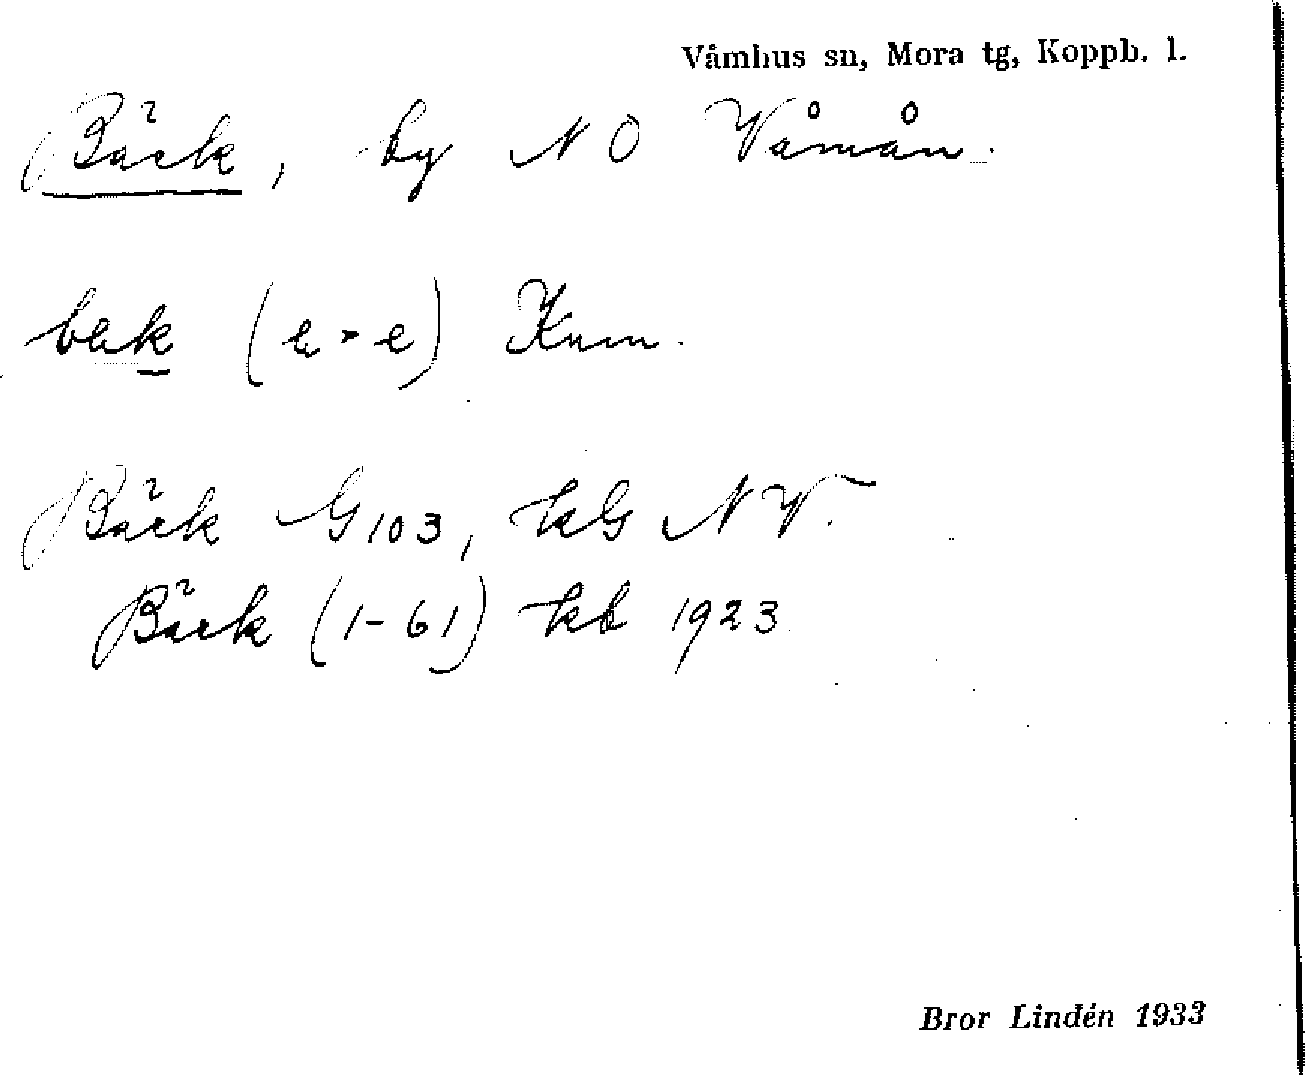 Våmhus sn, Mora tg, Koppb. l.
Bäck, by NO Våmån.
(e > e)
Bäck G103, kG NV.
Bäck (1-61) kb 1923
Bror Lindén 1933